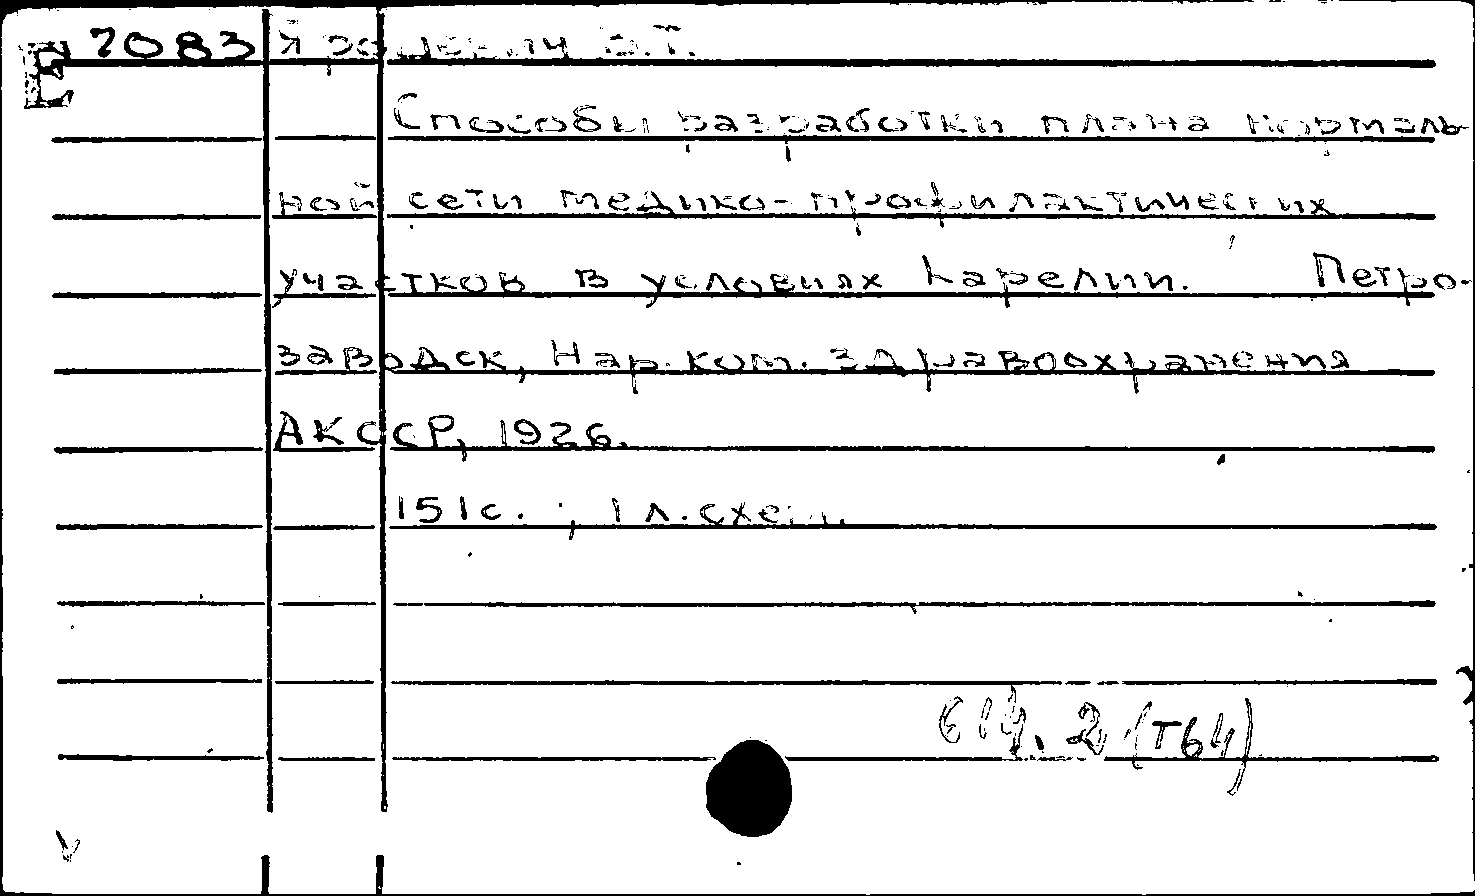 E 7083 Ярошевич В.Т.
Способы разработки плана нормаль-
ной сети медико-профилактических
участков в условиях Карелии. Петро-
заводск, Нар.ком. здравоохранения
АКССР, 1926.
151с. ; 1 л.схем.
614.2(Т64)